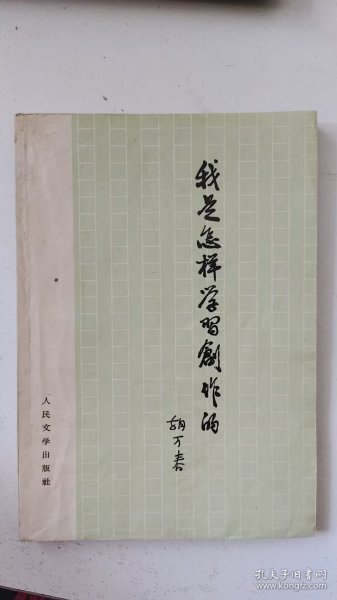 我是怎样学习創作的
胡万春
人民文学出版社
孔夫子旧书网
www.kongfz.com